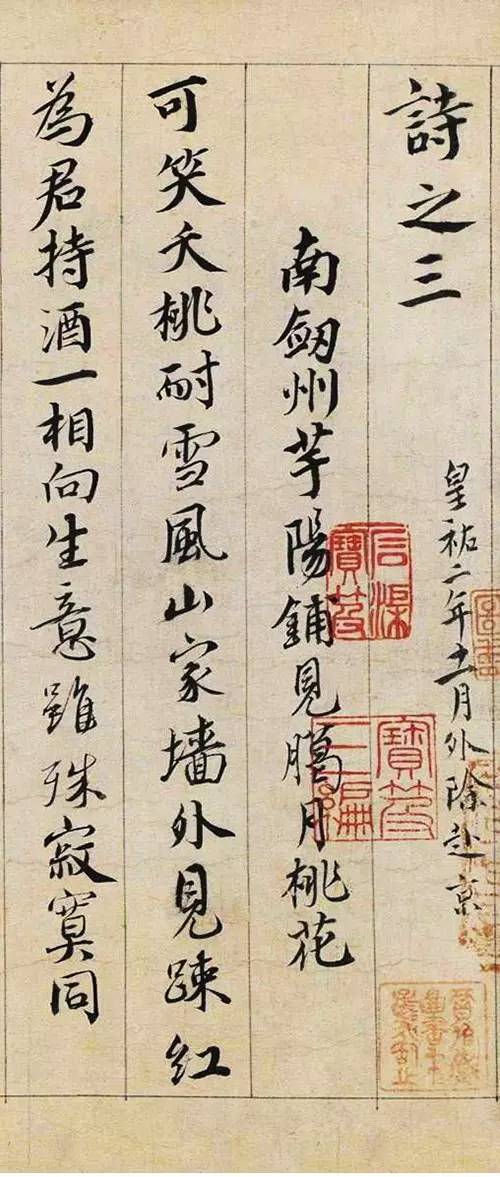 詩之三
皇祐二年十一月外除赴京
南劔州芋陽鋪見臈月桃花
可笑夭桃耐雪風山家墻外見踈紅
為君持酒一相向生意雖殊寂寞同
石渠寶笈
寶笈三編